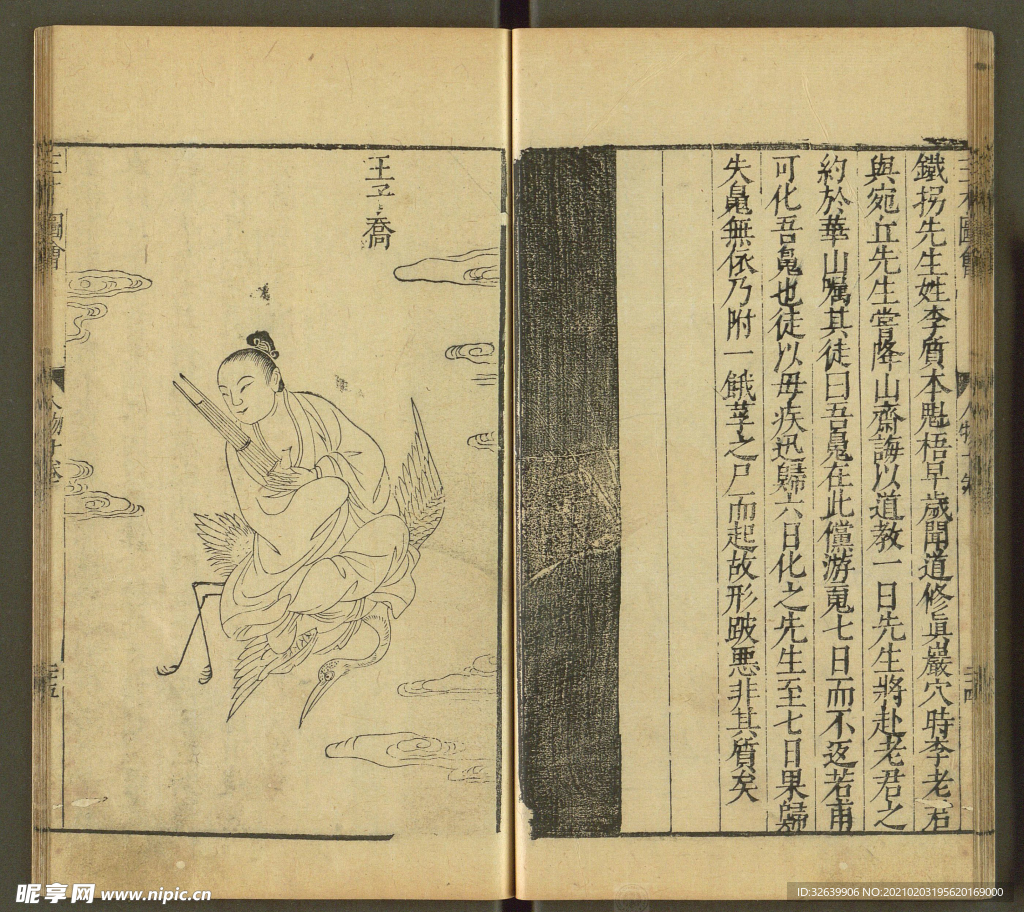 鐵拐先生姓李質本魁梧早歲聞道修真巖穴時李老君
與宛丘先生嘗降山齋誨以道教一日先生將赴老君之
約於華山囑其徒曰吾魂在此儻游魂七日而不返若甫
可化吾魂也徒以母疾迅歸六日化之先生至七日果歸
失魂無依乃附一餓莩之尸而起故形跛惡非其質矣
三才圖會
人物十卷
二十四
王子喬
三才圖會
人物十卷
二十五
昵享网 www.nipic.cn
ID:32639906 NO:20210203195620169000